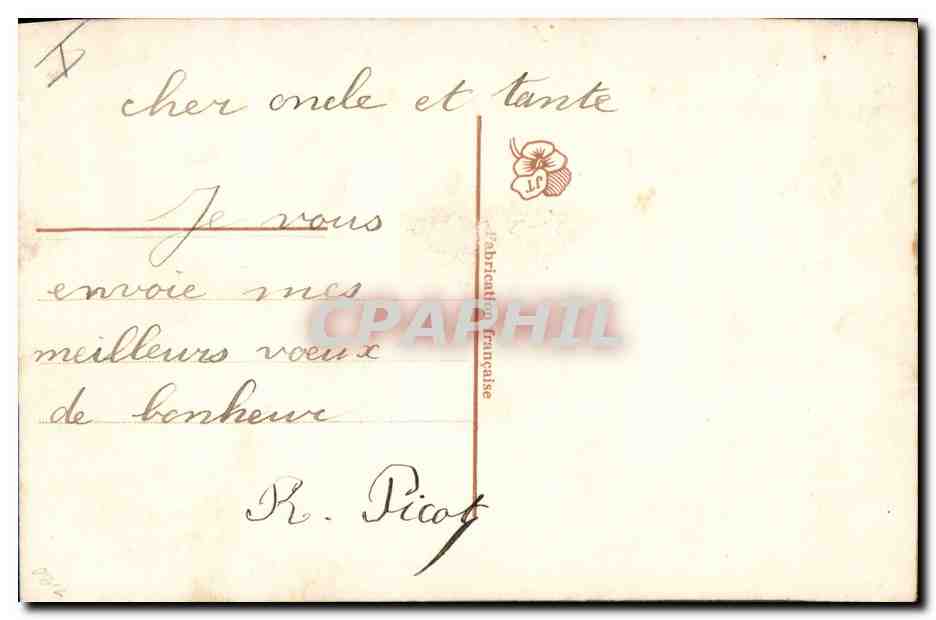 cher oncle et tante
JT
Je vous
envoie mes
meilleurs vœux
de bonheur
R. Picot
Fabrication française
CPAPHIL